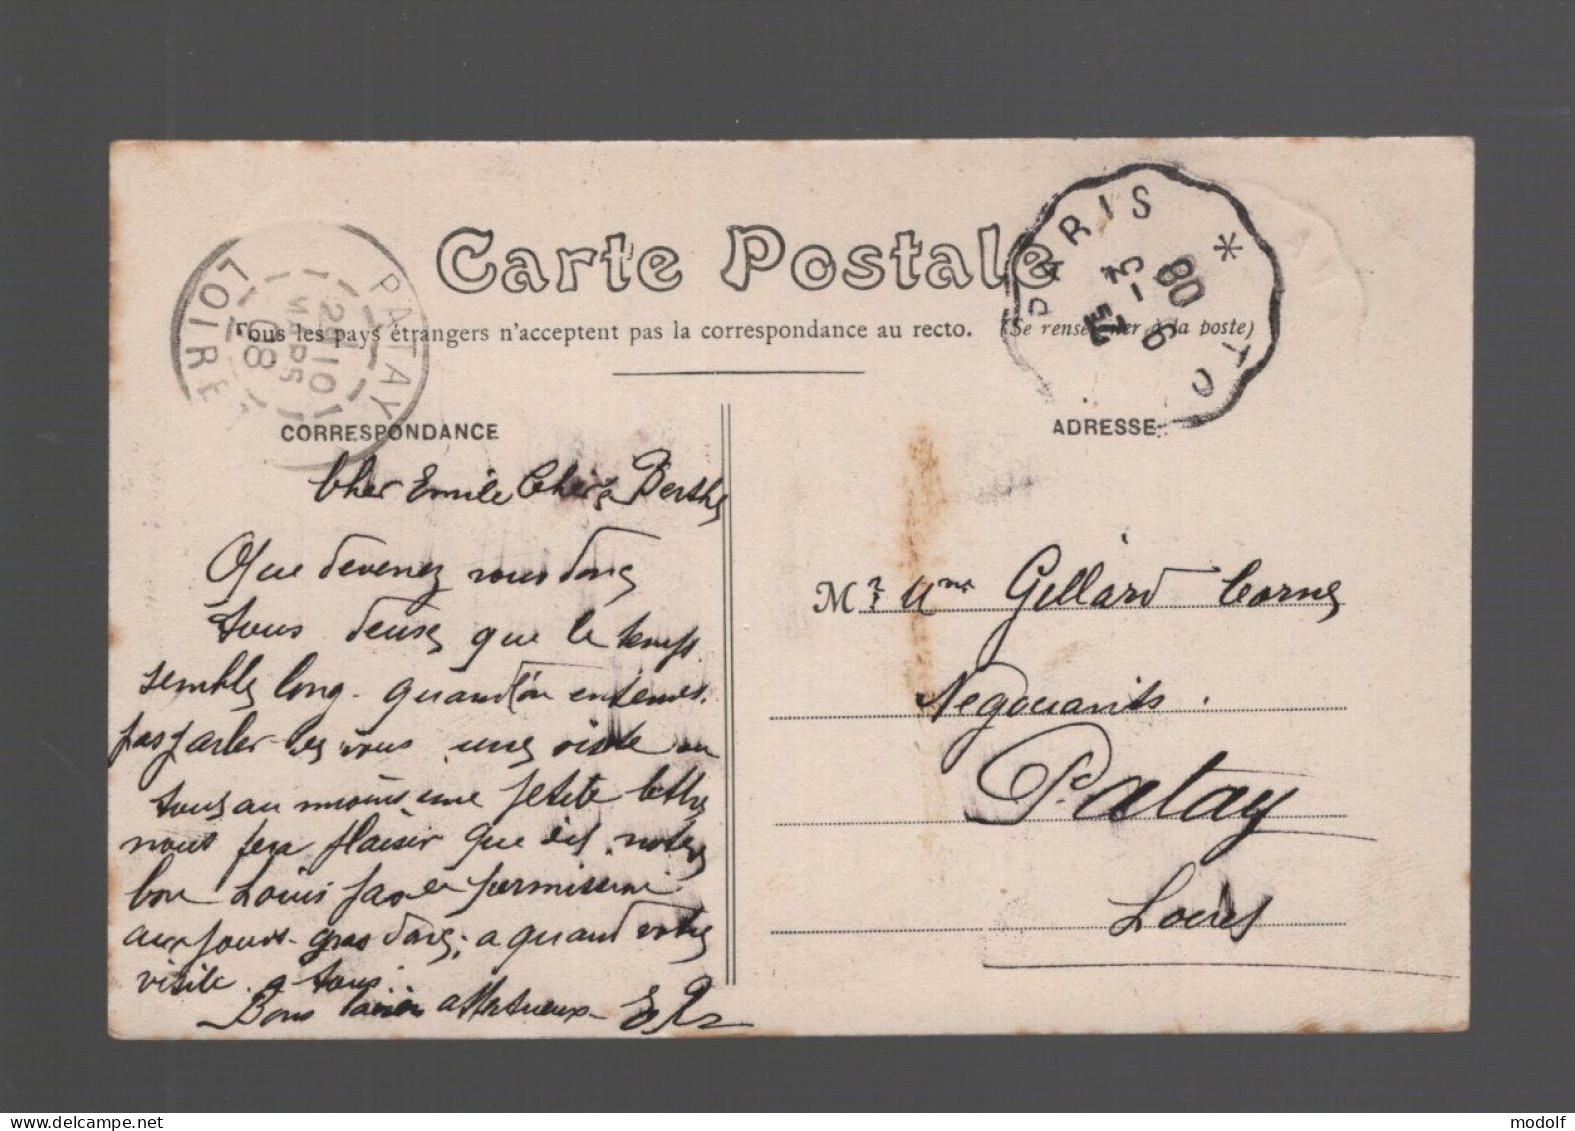 Carte Postale
Tous les pays étrangers n'acceptent pas la correspondance au recto. (Se renseigner à la poste)
PATAY
LOIRET
08
PARIS
3
08
CORRESPONDANCE
ADRESSE
Cher Emile Chère Berthe
Que devenez vous donc
tous deux que le temps
semble long. quand l'on entend
pas parler de vous une visite ou
tous au moins une petite lettre
nous fera plaisir que dit notre
bon Louis pas de permission
aux jours gras donc, a quand votre
visite a tous
Bons baisers affectueux
Mr & Mme Gillard Corne
Negociants.
Patay
Loiret
www.delcampe.net
modolf